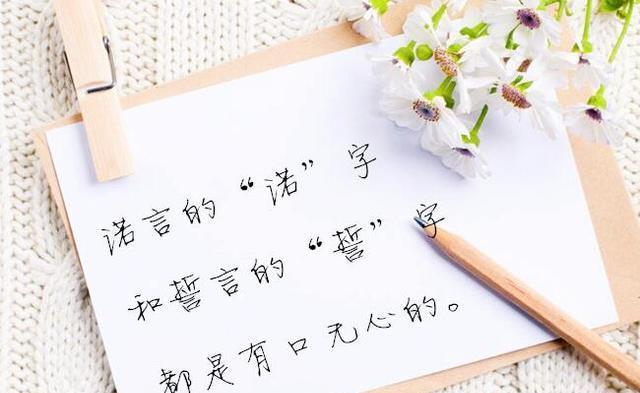 诺言的“诺”字
和誓言的“誓”字
都是有口无心的。